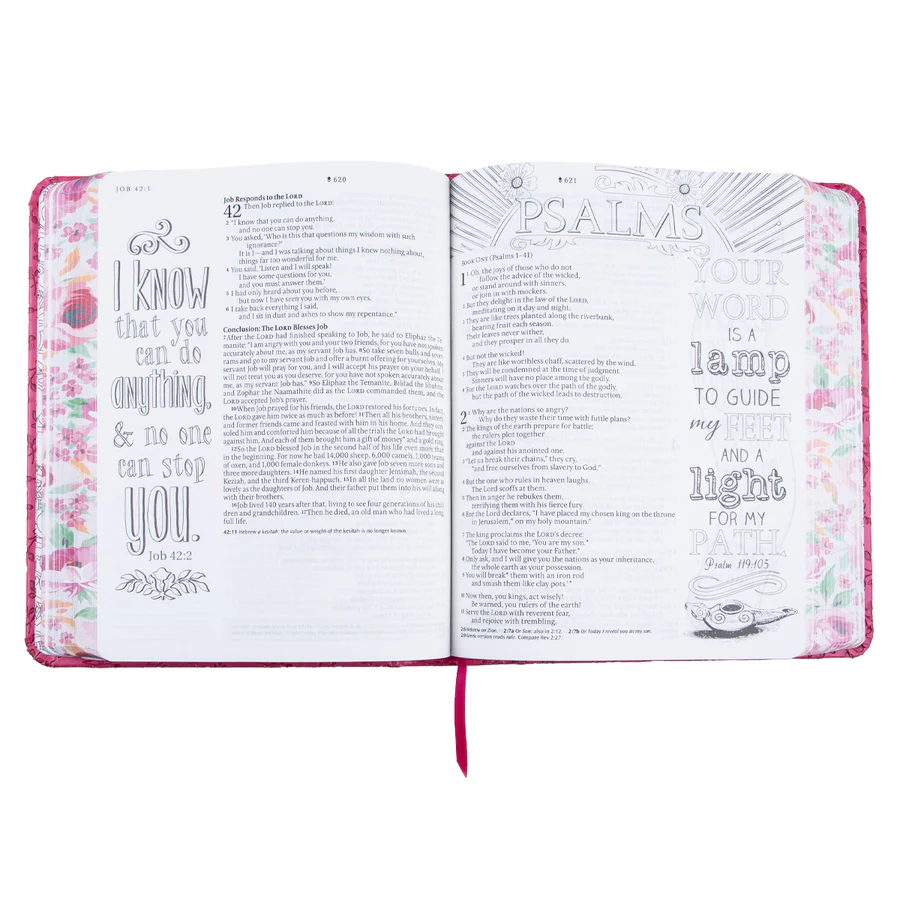 JOB 42:1
620
I KNOW
that you
can do
anything,
& no one
can stop
you.
Job 42:2
Job Responds to the LORD
42 Then Job replied to the LORD:
2 "I know that you can do anything,
and no one can stop you.
3 You asked, 'Who is this that questions my wisdom with such
ignorance?'
It is I—and I was talking about things I knew nothing about,
things far too wonderful for me.
4 You said, 'Listen and I will speak!
I have some questions for you,
and you must answer them.'
5 I had only heard about you before,
but now I have seen you with my own eyes.
6 I take back everything I said,
and I sit in dust and ashes to show my repentance."
Conclusion: The LORD Blesses Job
7 After the LORD had finished speaking to Job, he said to Eliphaz the Te-
manite: "I am angry with you and your two friends, for you have not spoken
accurately about me, as my servant Job has. 8 So take seven bulls and seven
rams and go to my servant Job and offer a burnt offering for yourselves. My
servant Job will pray for you, and I will accept his prayer on your behalf. I
will not treat you as you deserve, for you have not spoken accurately about
me, as my servant Job has." 9 So Eliphaz the Temanite, Bildad the Shuhite,
and Zophar the Naamathite did as the LORD commanded them, and the
LORD accepted Job's prayer.
10 When Job prayed for his friends, the LORD restored his fortunes. In fact,
the LORD gave him twice as much as before! 11 Then all his brothers, sisters,
and former friends came and feasted with him in his home. And they con-
soled him and comforted him because of all the trials the LORD had brought
against him. And each of them brought him a gift of money* and a gold ring.
12 So the LORD blessed Job in the second half of his life even more than
in the beginning. For now he had 14,000 sheep, 6,000 camels, 1,000 teams
of oxen, and 1,000 female donkeys. 13 He also gave Job seven more sons and
three more daughters. 14 He named his first daughter Jemimah, the second
Keziah, and the third Keren-happuch. 15 In all the land no women were as
lovely as the daughters of Job. And their father put them into his will along
with their brothers.
16 Job lived 140 years after that, living to see four generations of his chil-
dren and grandchildren. 17 Then he died, an old man who had lived a long,
full life.
42:11 Hebrew a kesitah; the value or weight of the kesitah is no longer known.
621
PSALMS
BOOK ONE (Psalms 1–41)
1 Oh, the joys of those who do not
follow the advice of the wicked,
or stand around with sinners,
or join in with mockers.
2 But they delight in the law of the LORD,
meditating on it day and night.
3 They are like trees planted along the riverbank,
bearing fruit each season.
Their leaves never wither,
and they prosper in all they do.
4 But not the wicked!
They are like worthless chaff, scattered by the wind.
5 They will be condemned at the time of judgment.
Sinners will have no place among the godly.
6 For the LORD watches over the path of the godly,
but the path of the wicked leads to destruction.
2 1 Why are the nations so angry?
Why do they waste their time with futile plans?
2 The kings of the earth prepare for battle;
the rulers plot together
against the LORD
and against his anointed one.
3 "Let us break their chains," they cry,
"and free ourselves from slavery to God."
4 But the one who rules in heaven laughs.
The Lord scoffs at them.
5 Then in anger he rebukes them,
terrifying them with his fierce fury.
6 For the Lord declares, "I have placed my chosen king on the throne
in Jerusalem,* on my holy mountain."
7 The king proclaims the LORD's decree:
"The LORD said to me, 'You are my son.*
Today I have become your Father.*
8 Only ask, and I will give you the nations as your inheritance,
the whole earth as your possession.
9 You will break* them with an iron rod
and smash them like clay pots.'"
10 Now then, you kings, act wisely!
Be warned, you rulers of the earth!
11 Serve the LORD with reverent fear,
and rejoice with trembling.
2:6 Hebrew on Zion. 2:7a Or Son; also in 2:12. 2:7b Or Today I reveal you as my son.
2:9 Greek version reads rule. Compare Rev 2:27.
YOUR
WORD
IS A
lamp
TO GUIDE
my FEET
AND A
light
FOR MY
PATH.
Psalm 119:105